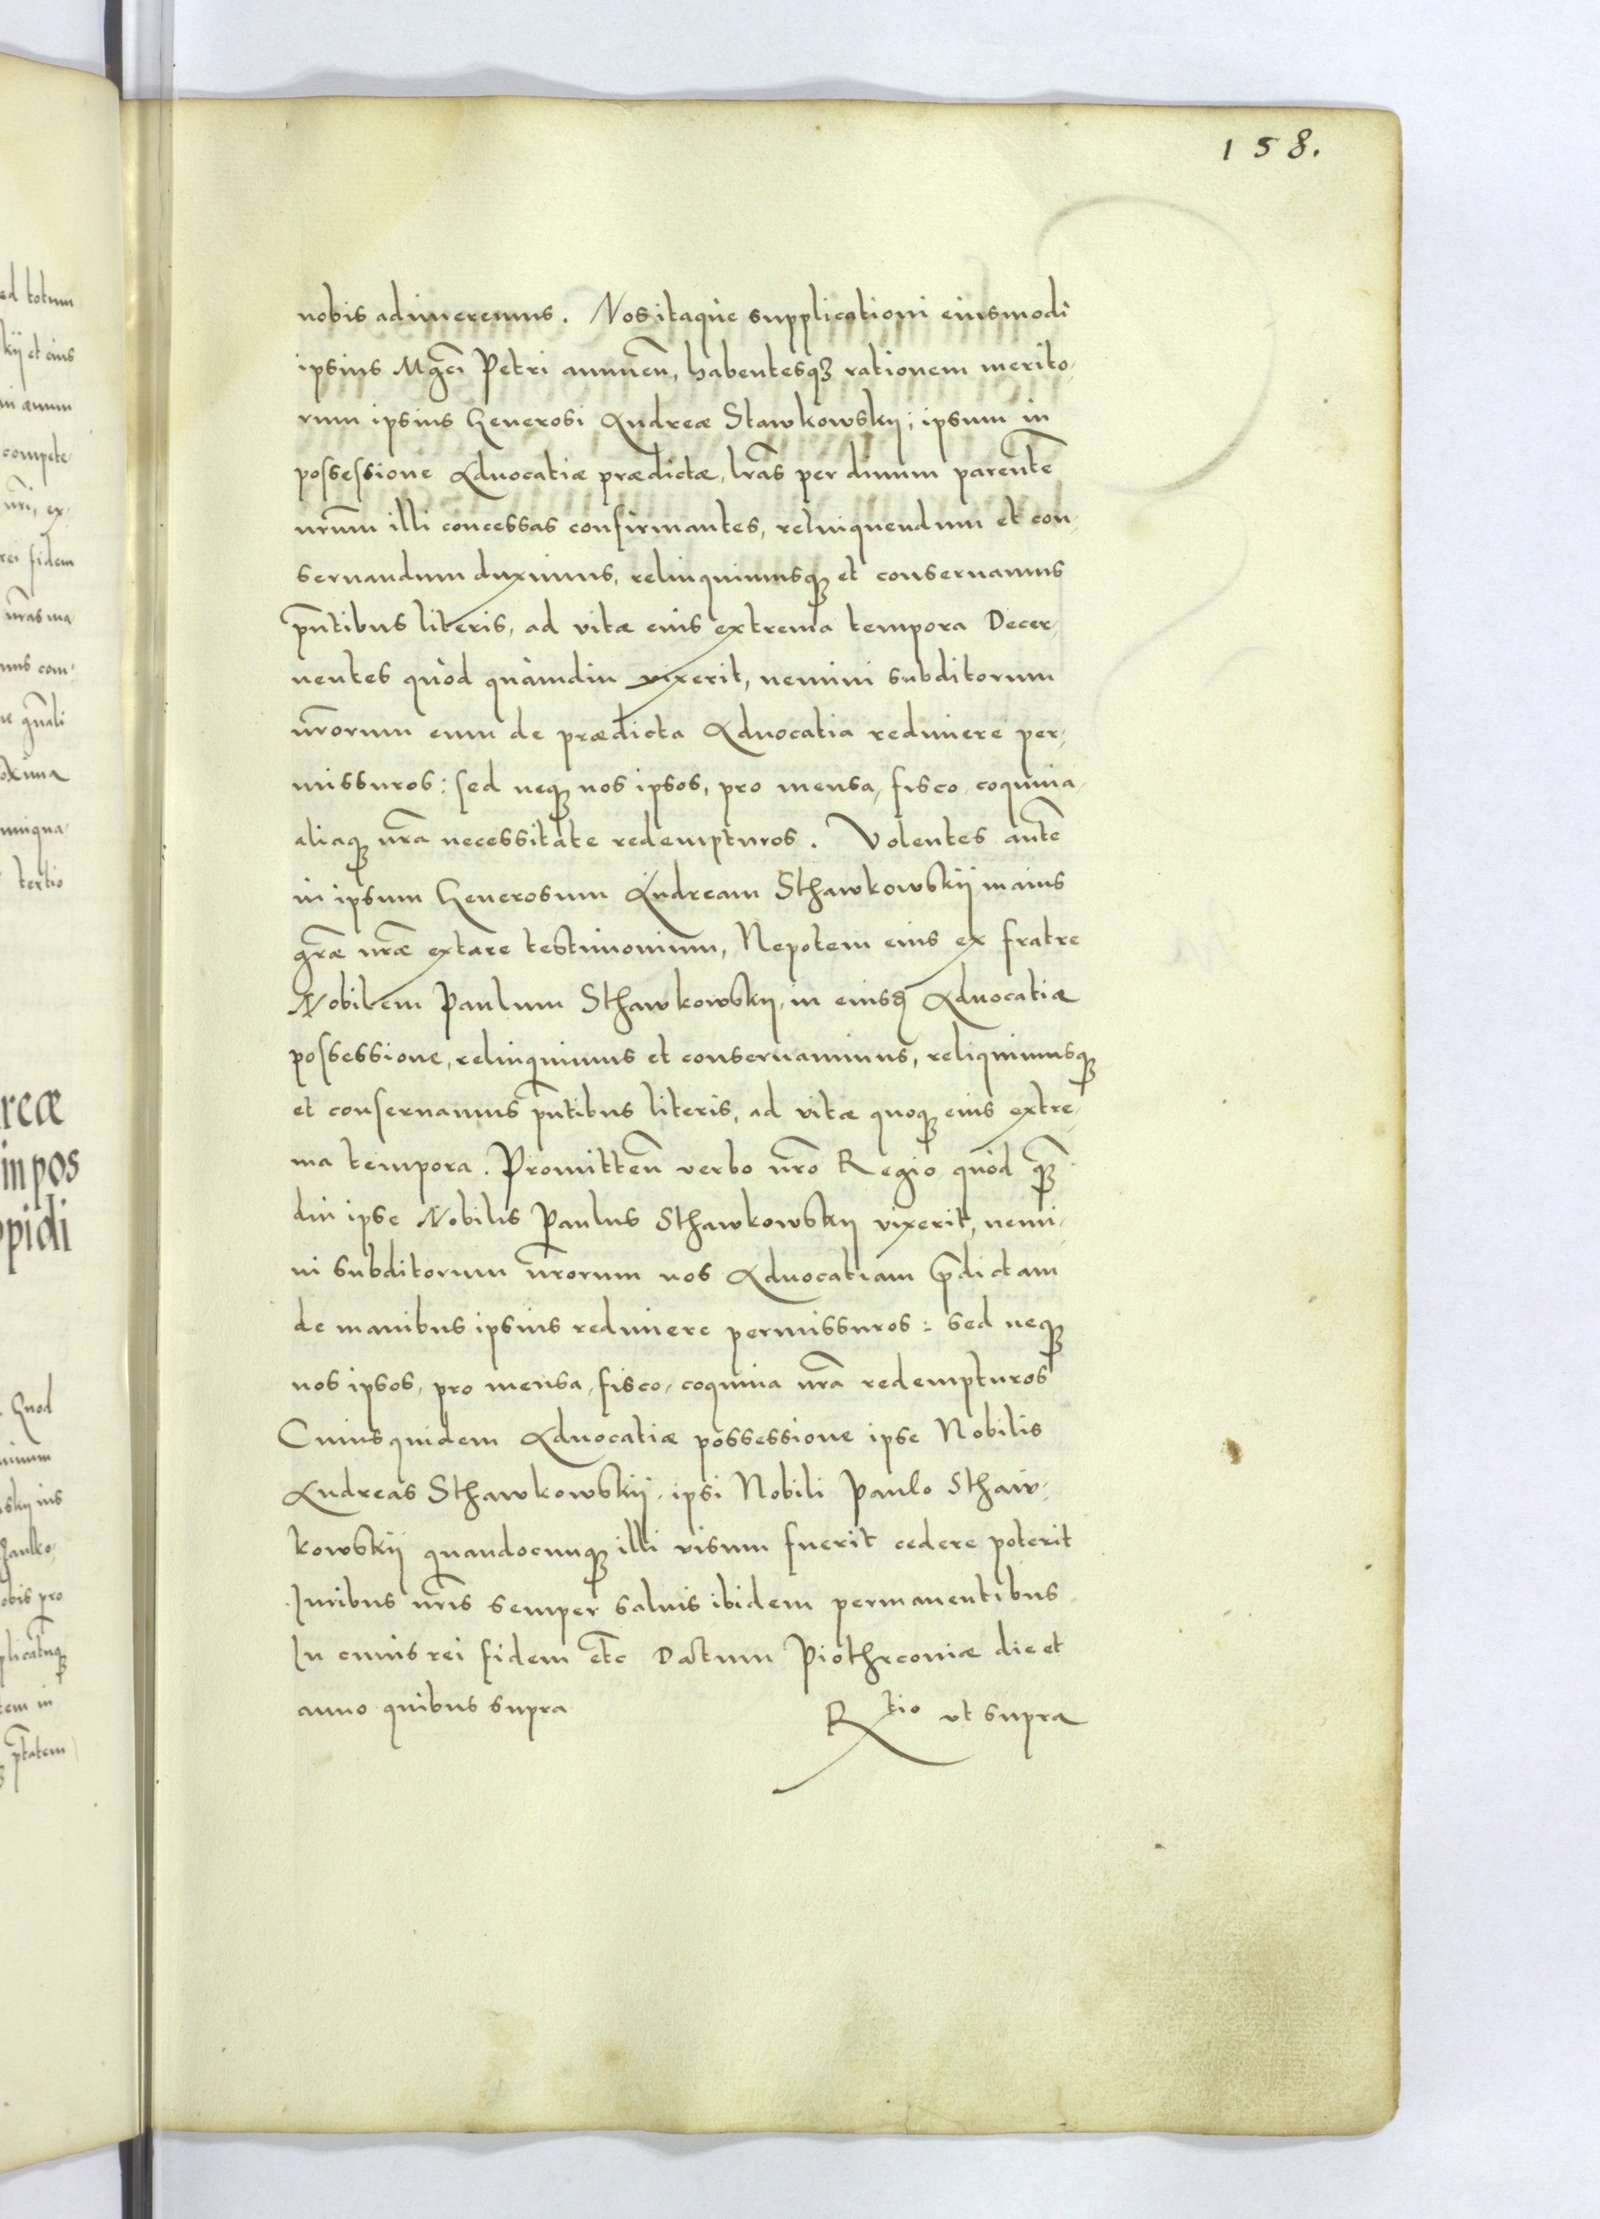 158.
nobis adimeremus. Nos itaque supplicationi eiusmodi
ipsius Mgci Petri annuen, habentesq3 rationem merito,
rum ipsius Generosi Andreæ Stawkowskij, ipsum in
possessione Advocatiæ prædictæ, lras per divum parente
nrum illi concessas confirmantes, relinquendum et con,
servandum duximus, relinquimusq3 et conservamus
pntibus literis, ad vitæ eius extrema tempora Decer,
nentes quòd quàmdiu vixerit, nemini subditorum
nrorum eum de prædicta Advocatia redimere per,
missuros: sed neq3 nos ipsos, pro mensa, fisco, coquina,
aliaq3 nra necessitate redempturos. Volentes aute
in ipsum Generosum Andream Sthawkowskij maius
græ nræ extare testimonium, Nepotem eius ex fratre
Nobilem Paulum Sthawkowskij, in eiusd Advocatiæ
possessione, relinquimus et conservamus, reliquimusq3
et conservamus pntibus literis, ad vitæ quoq3 eius extre,
ma tempora. Promitten verbo nro Regio quòd q3
diu ipse Nobilis Paulus Sthawkowskij vixerit, nemi,
ni subditorum nrorum nos Advocatiam pdictam
de manibus ipsius redimere permissuros: sed neq3
nos ipsos, pro mensa, fisco, coquina nra redempturos
Cuiusquidem Advocatiæ possessione ipse Nobilis
Andreas Sthawkowskij, ipsi Nobili Paulo Sthaw,
kowskij quandocunq3 illi visum fuerit cedere poterit
Iuribus nris semper salvis ibidem permanentibus
In cuius rei fidem etc Datum Piothrconiæ die et
anno quibus supra
Rtio vt supra